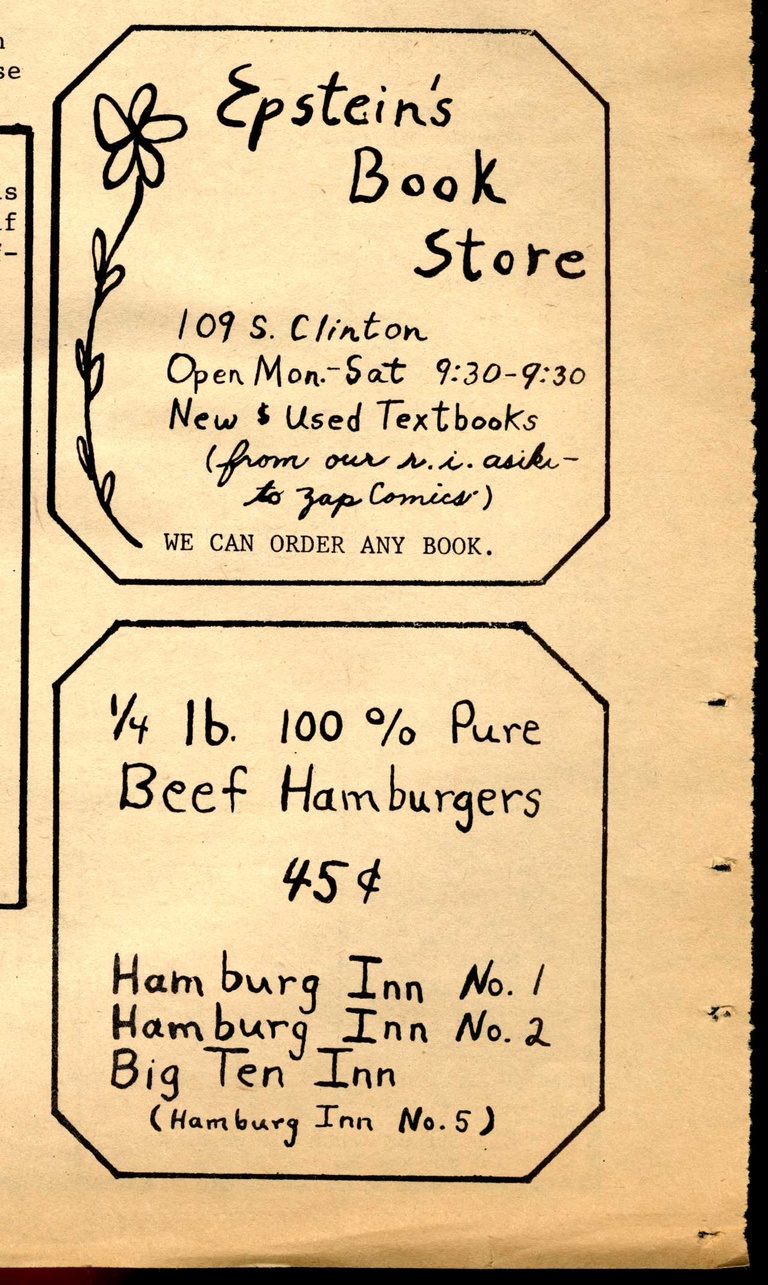 Epstein's
Book
Store
109 S. Clinton
Open Mon.-Sat 9:30-9:30
New $ Used Textbooks
(from our r.i. asiki-
to Zap Comics)
WE CAN ORDER ANY BOOK.
1/4 lb. 100% Pure
Beef Hamburgers
45¢
Hamburg Inn No. 1
Hamburg Inn No. 2
Big Ten Inn
(Hamburg Inn No. 5)